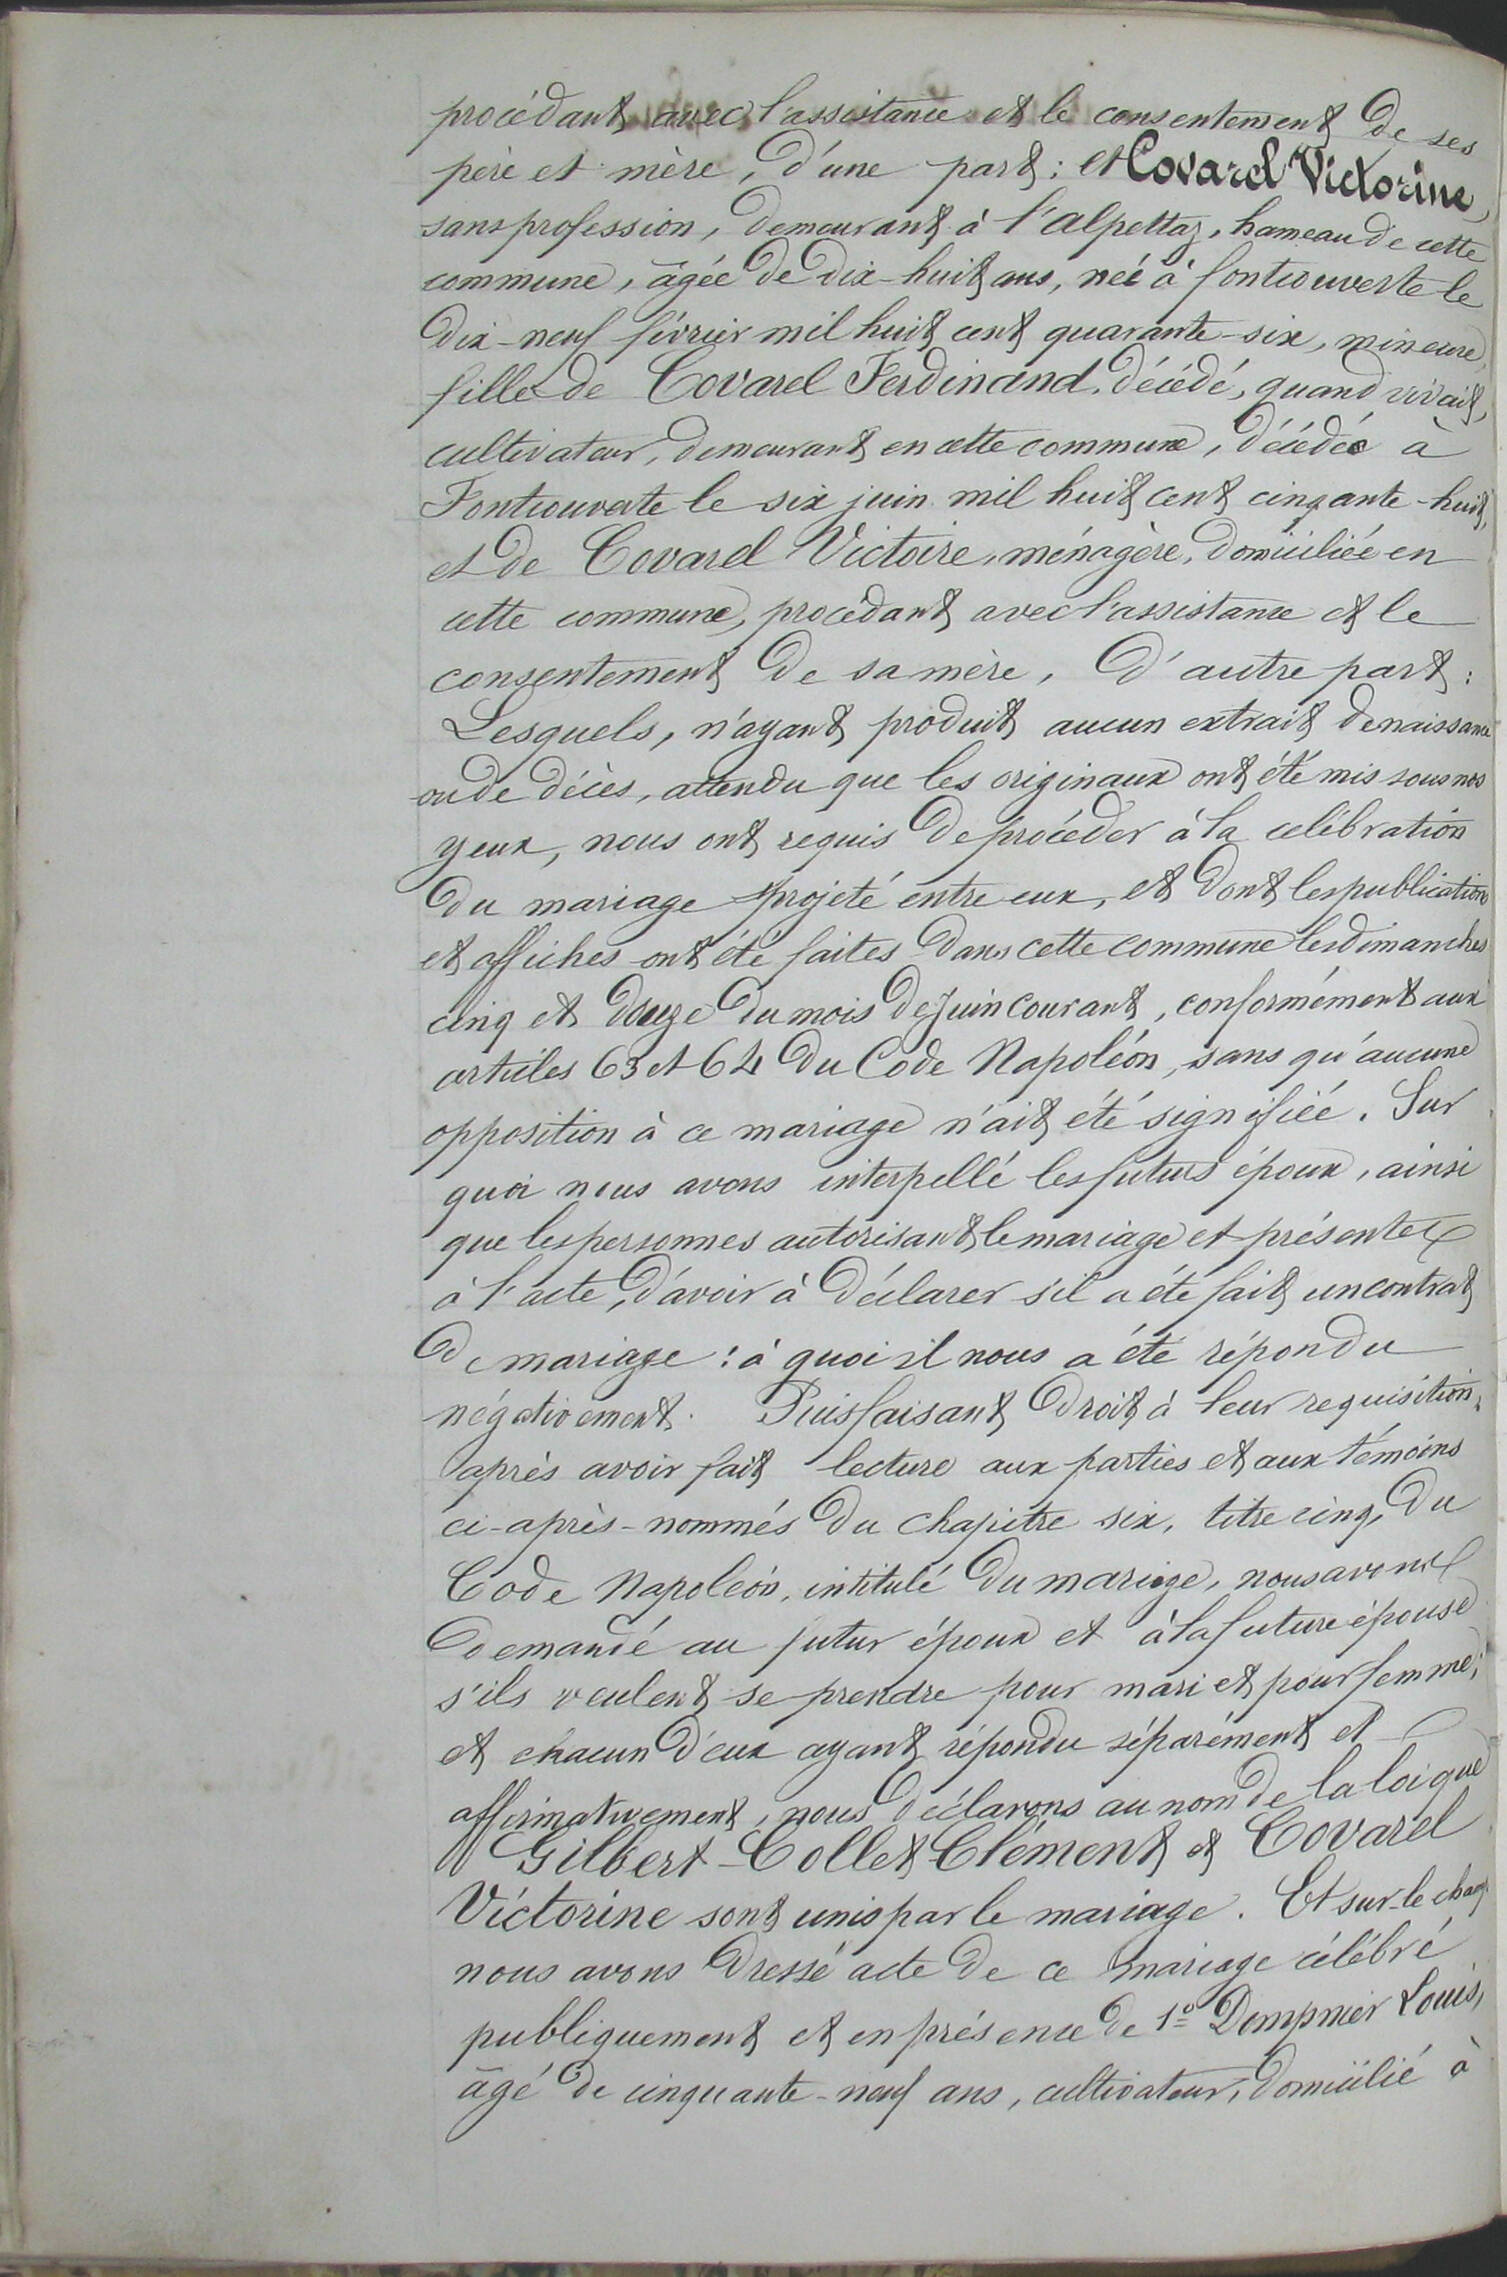 procédant avec l'assistance et le consentement de ses
père et mère, d'une part ; et Covarel Victorine,
sans profession, demeurant à l'alpettaz, hameau de cette
commune, âgée de dix-huit ans, née à fontcouverte le
dix-neuf février mil huit cent quarante-six, mineure,
fille de Covarel Ferdinand, décédé, quand vivait,
cultivateur, demeurant en cette commune, décédée à
Fontcouverte le six juin mil huit cent cinqante-huit,
et de Covarel Victoire, ménagère, domiciliée en
cette commune, procédant avec l'assistance et le
consentement de sa mère, d'autre part :
Lesquels, n'ayant produit aucun extrait de naissance
ou de décès, attendu que les originaux ont été mis sous nos
yeux, nous ont requis de procéder à la célébration
du mariage projeté entre eux, et dont les publications
et affiches ont été faites dans cette commune les dimanches
cinq et douze du mois de Juin courant, conformément aux
articles 63 et 64 du Code Napoléon, sans qu'aucune
opposition à ce mariage n'ait été signifiée. Sur
quoi nous avons interpellé les futurs époux, ainsi
que les personnes autorisant le mariage et présentes
à l'acte, d'avoir à déclarer s'il a été fait un contrat
de mariage : à quoi il nous a été répondu
négativement. Puis faisant droit à leur requisition,
après avoir fait lecture aux parties et aux témoins
ci-après-nommés du chapitre six, titre cinq, du
Code Napoléon, intitulé du mariage, nous avons
demandé au futur époux et à la future épouse
s'ils veulent se prendre pour mari et pour femme;
et chacun d'eux ayant répondu séparément et
affirmativement, nous déclarons au nom de la loi que
Gilbert-Collet Clément et Covarel
Victorine sont unis par le mariage. Et sur-le champ
nous avons dressé acte de ce mariage célébré
publiquement et en présence de 1º Dompnier Louis,
âgé de cinquante-neuf ans, cultivateur, domicilié à